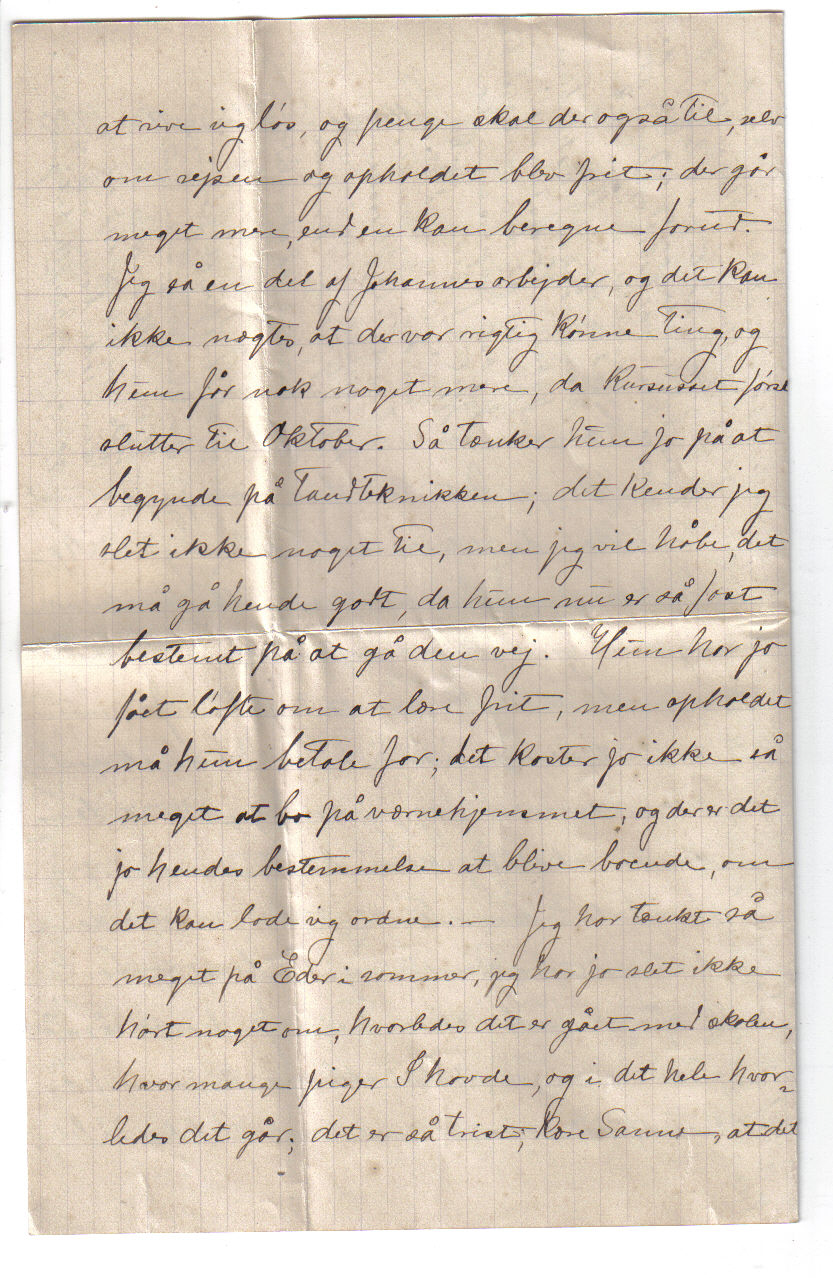 at rive sig løs, og penge skal der også til, selv
om rejsen og opholdet blev frit; der går
meget mere, end en kan beregne forud.
Jeg så en del af Johannes arbejder, og det kan
ikke nægtes, at der var rigtig kønne ting, og
hun får nok noget mere, da kursusset først
slutter til Oktober. Så tænker hun jo på at
begynde på tandteknikken; det kender jeg
slet ikke noget til, men jeg vil håbe, det
må gå hende godt, da hun nu er så fast
bestemt på at gå den vej. Hun har jo
fået løfte om at lære frit, men opholdet
må hun betale for; det koster jo ikke så
meget at bo på værnehjemmet, og der er det
jo hendes bestemmelse at blive boende, om
det kan lade sig ordne. — Jeg har tænkt så
meget på Eder i sommer, jeg har jo slet ikke
hørt noget om, hvorledes det er gået med skolen,
hvor mange piger I havde, og i det hele hvor-
ledes det går; det er så trist, kære Sanne, at det